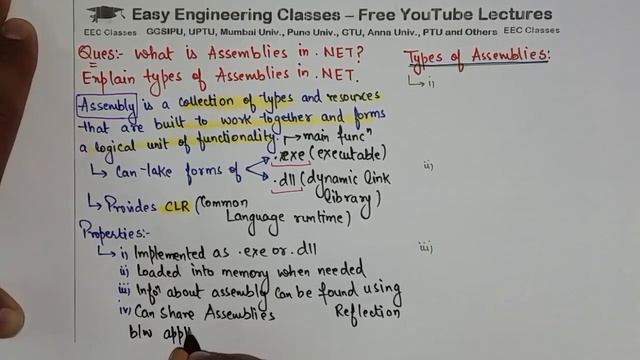 Easy Engineering Classes – Free YouTube Lectures
EEC Classes GGSIPU, UPTU, Mumbai Univ., Pune Univ., GTU, Anna Univ., PTU and Others EEC Classes
.NET
Ques:- What is Assemblies in .NET?
Explain types of Assemblies in .NET.
Assembly is a collection of types and resources
that are built to work together and forms
a logical unit of functionality.
main funcⁿ
↳ Can take forms of .exe (executable)
.dll (dynamic link library)
↳ Provides CLR (Common Language runtime)
Properties:-
↳ i) Implemented as .exe or .dll
ii) Loaded into memory when needed
iii) Infⁿ about assembly can be found using Reflection
iv) Can share Assemblies
b/w appl
Types of Assemblies:
↳ i)
ii)
iii)